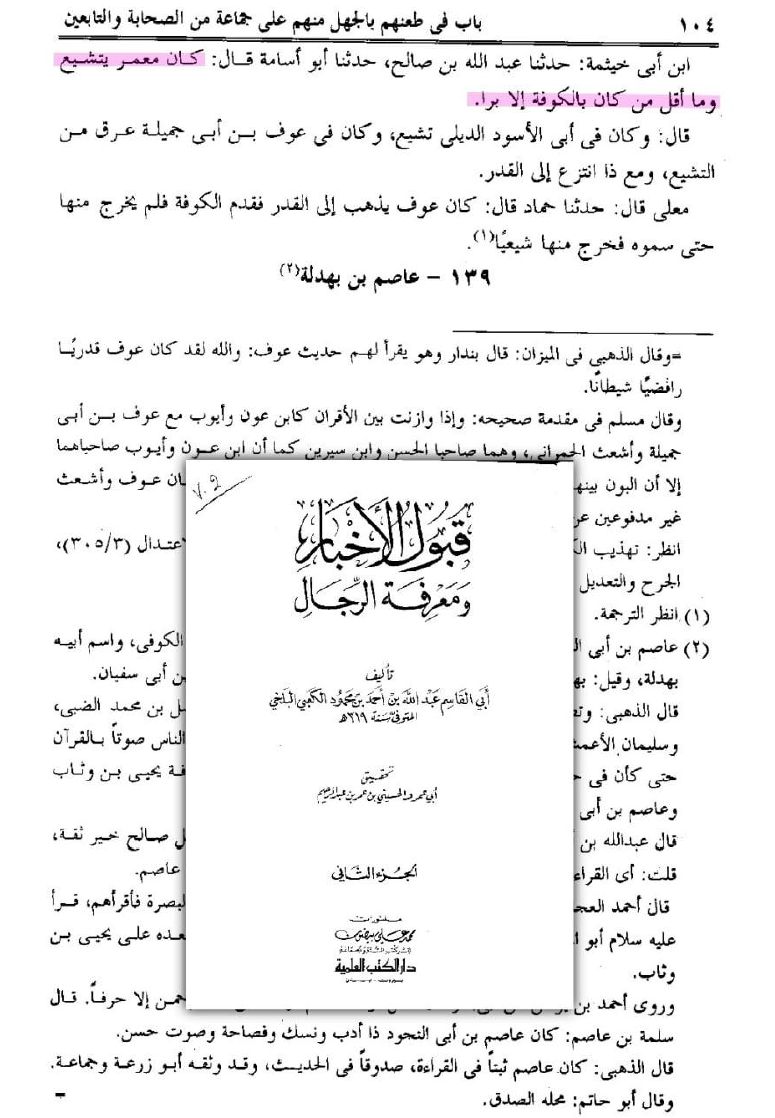 ١٠٤ باب فى طعنهم بالجهل منهم على جماعة من الصحابة والتابعين
ابن أبى خيثمة: حدثنا عبد الله بن صالح، حدثنا أبو أسامة قال: كان معمر يتشيع
وما أقل من كان بالكوفة إلا برا.
قال: وكان فى أبى الأسود الديلى تشيع، وكان فى عوف بن أبى جميلة عرق من
التشيع، ومع ذا انتزع إلى القدر.
معلى قال: حدثنا حماد قال: كان عوف يذهب إلى القدر فقدم الكوفة فلم يخرج منها
حتى سموه فخرج منها شيعيًا(١).
١٣٩ – عاصم بن بهدلة(٢)
=وقال الذهبى فى الميزان: قال بندار وهو يقرأ لهم حديث عوف: والله لقد كان عوف قدريًا
رافضيًا شيطانًا.
وقال مسلم فى مقدمة صحيحه: وإذا وازنت بين الأقران كابن عون وأيوب مع عوف بن أبى
جميلة وأشعث الحمرانى، وهما صاحبا الحسن وابن سيرين كما أن ابن عون وأيوب صاحباهما
إلا أن البون بينه
ان عوف وأشعث
غير مدفوعين عن
انظر: تهذيب الك
لاعتدال (٣٠٥/٣)،
الجرح والتعديل
(١) انظر الترجمة.
(٢) عاصم بن أبى ال
الكوفى، واسم أبيه
بهدلة، وقيل: به
ن أبى سفيان.
قال الذهبى:
ل بن محمد الضبى،
وسليمان الأعمش
الناس صوتاً بالقرآن
حتى كأن فى
فة يحيى بن وثاب
وعاصم بن أبى
قال عبدالله بن
ل صالح خير ثقة،
قلت: أى القراء
عاصم.
قال أحمد العج
لبصرة فأقرأهم، قرأ
عليه سلام أبو
عده على يحيى بن
وثاب.
وروى أحمد بن
من إلا حرفاً. قال
سلمة بن عاصم: كان عاصم بن أبى النجود ذا أدب ونسك وفصاحة وصوت حسن.
قال الذهبى: كان عاصم ثبتاً فى القراءة، صدوقاً فى الحديث، وقد وثقه أبو زرعة وجماعة.
وقال أبو حاتم: محله الصدق.
=
٧.2
قبول الأخبار
ومعرفة الرجال
تأليف
أبي القاسم عبد الله بن أحمد بن محمود الكعبي البلخي
المتوفى سنة ٣١٩هـ
تحقيق
أبي عمرو الحسيني بن عمر بن عبد الرحيم
الجزء الثاني
منشورات
محمد علي بيضون
دار الكتب العلمية
بيروت - لبنان